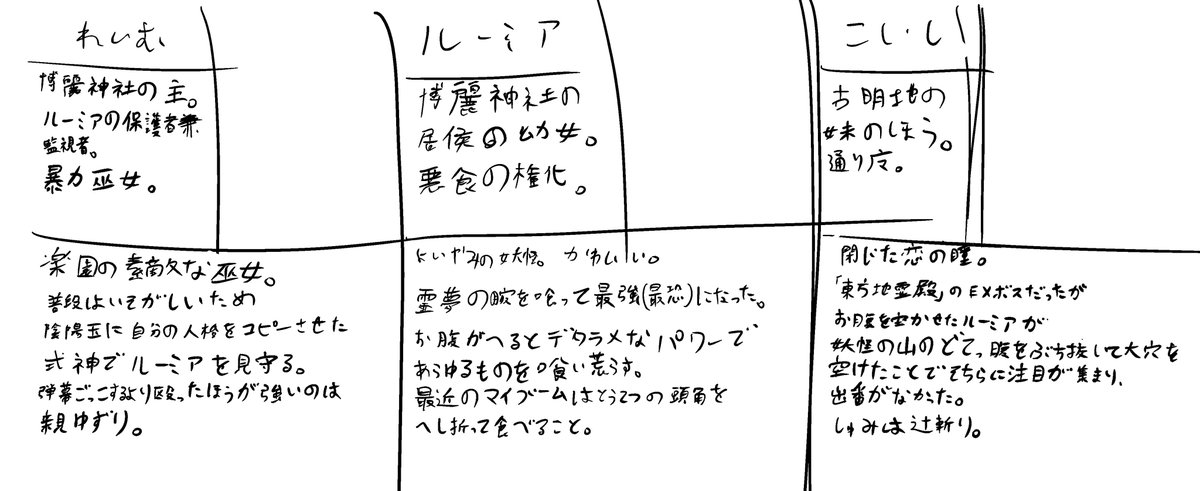 れいむ
博麗神社の主。
ルーミアの保護者兼
監視者。
暴力巫女。
楽園の素敵な巫女。
普段はいそがしいため
陰陽玉に自分の人格をコピーさせた
式神でルーミアを見守る。
弾幕ごっこするより殴ったほうが強いのは
親ゆずり。
ルーミア
博麗神社の
居候の幼女。
悪食の権化。
よいやみの妖怪。かわいい。
霊夢の腕を喰って最強(最恐)になった。
お腹がへるとデタラメなパワーで
あらゆるものを喰い荒らす。
最近のマイブームはとうてつの頭角を
へし折って食べること。
こいし
古明地の
妹のほう。
通り魔。
閉じた恋の瞳。
「東方地霊殿」のEXボスだったが
お腹を空かせたルーミアが
妖怪の山のどてっ腹をぶち抜いて大穴を
空けたことでそちらに注目が集まり、
出番がなかった。
しゅみは辻斬り。